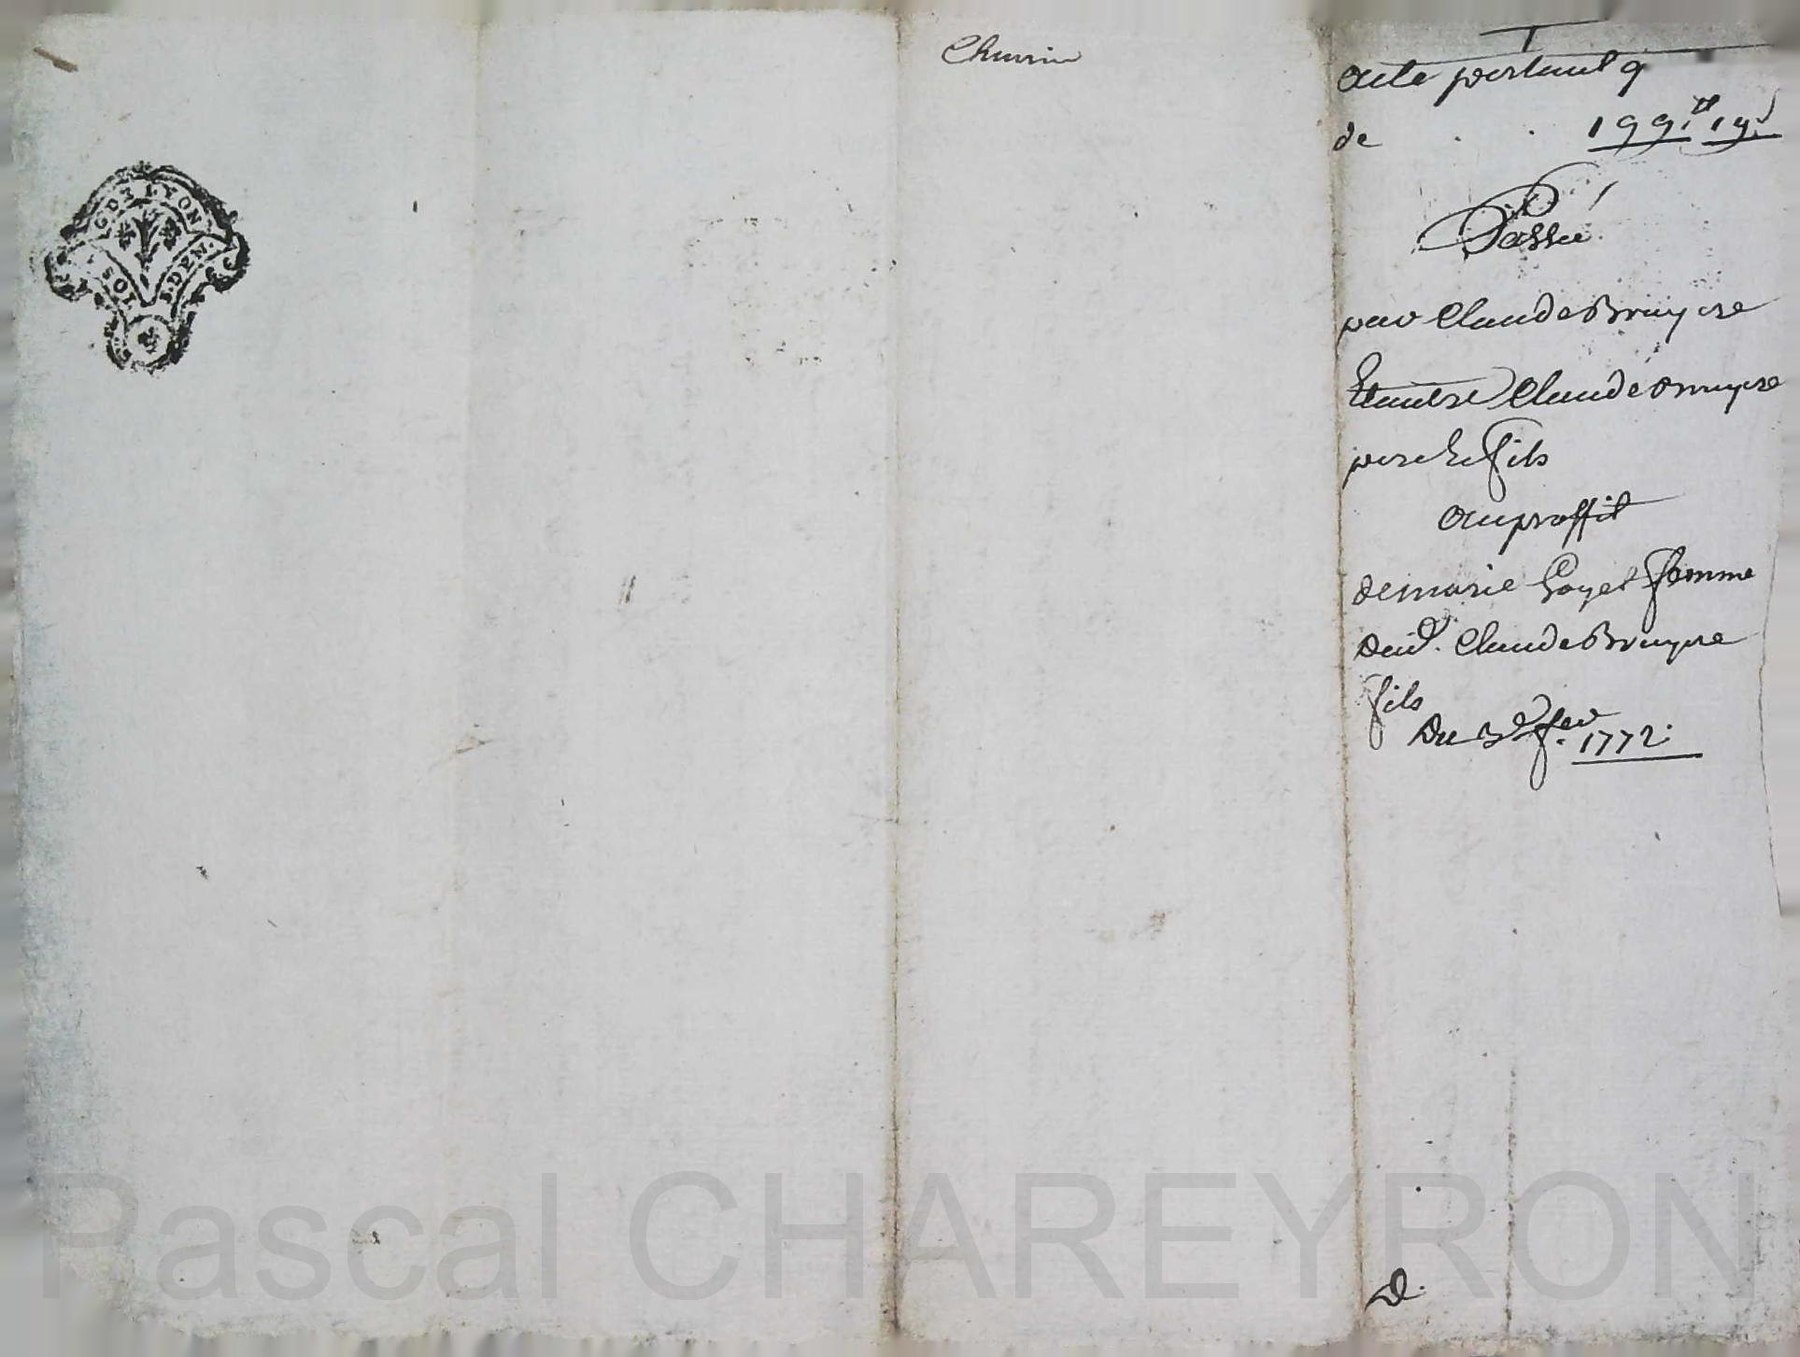 G DE LYON
SOL S. DEN.
Acte portant q
de . . 199.tt 19.s
Passé
par Claude Bruyere
Et autre Claude Bruyere
pere Et fils
au proffit
de marie Goyet femme
dud. Claude Bruyere
fils
Du 3e fer. 1772.
D.
Pascal CHAREYRON